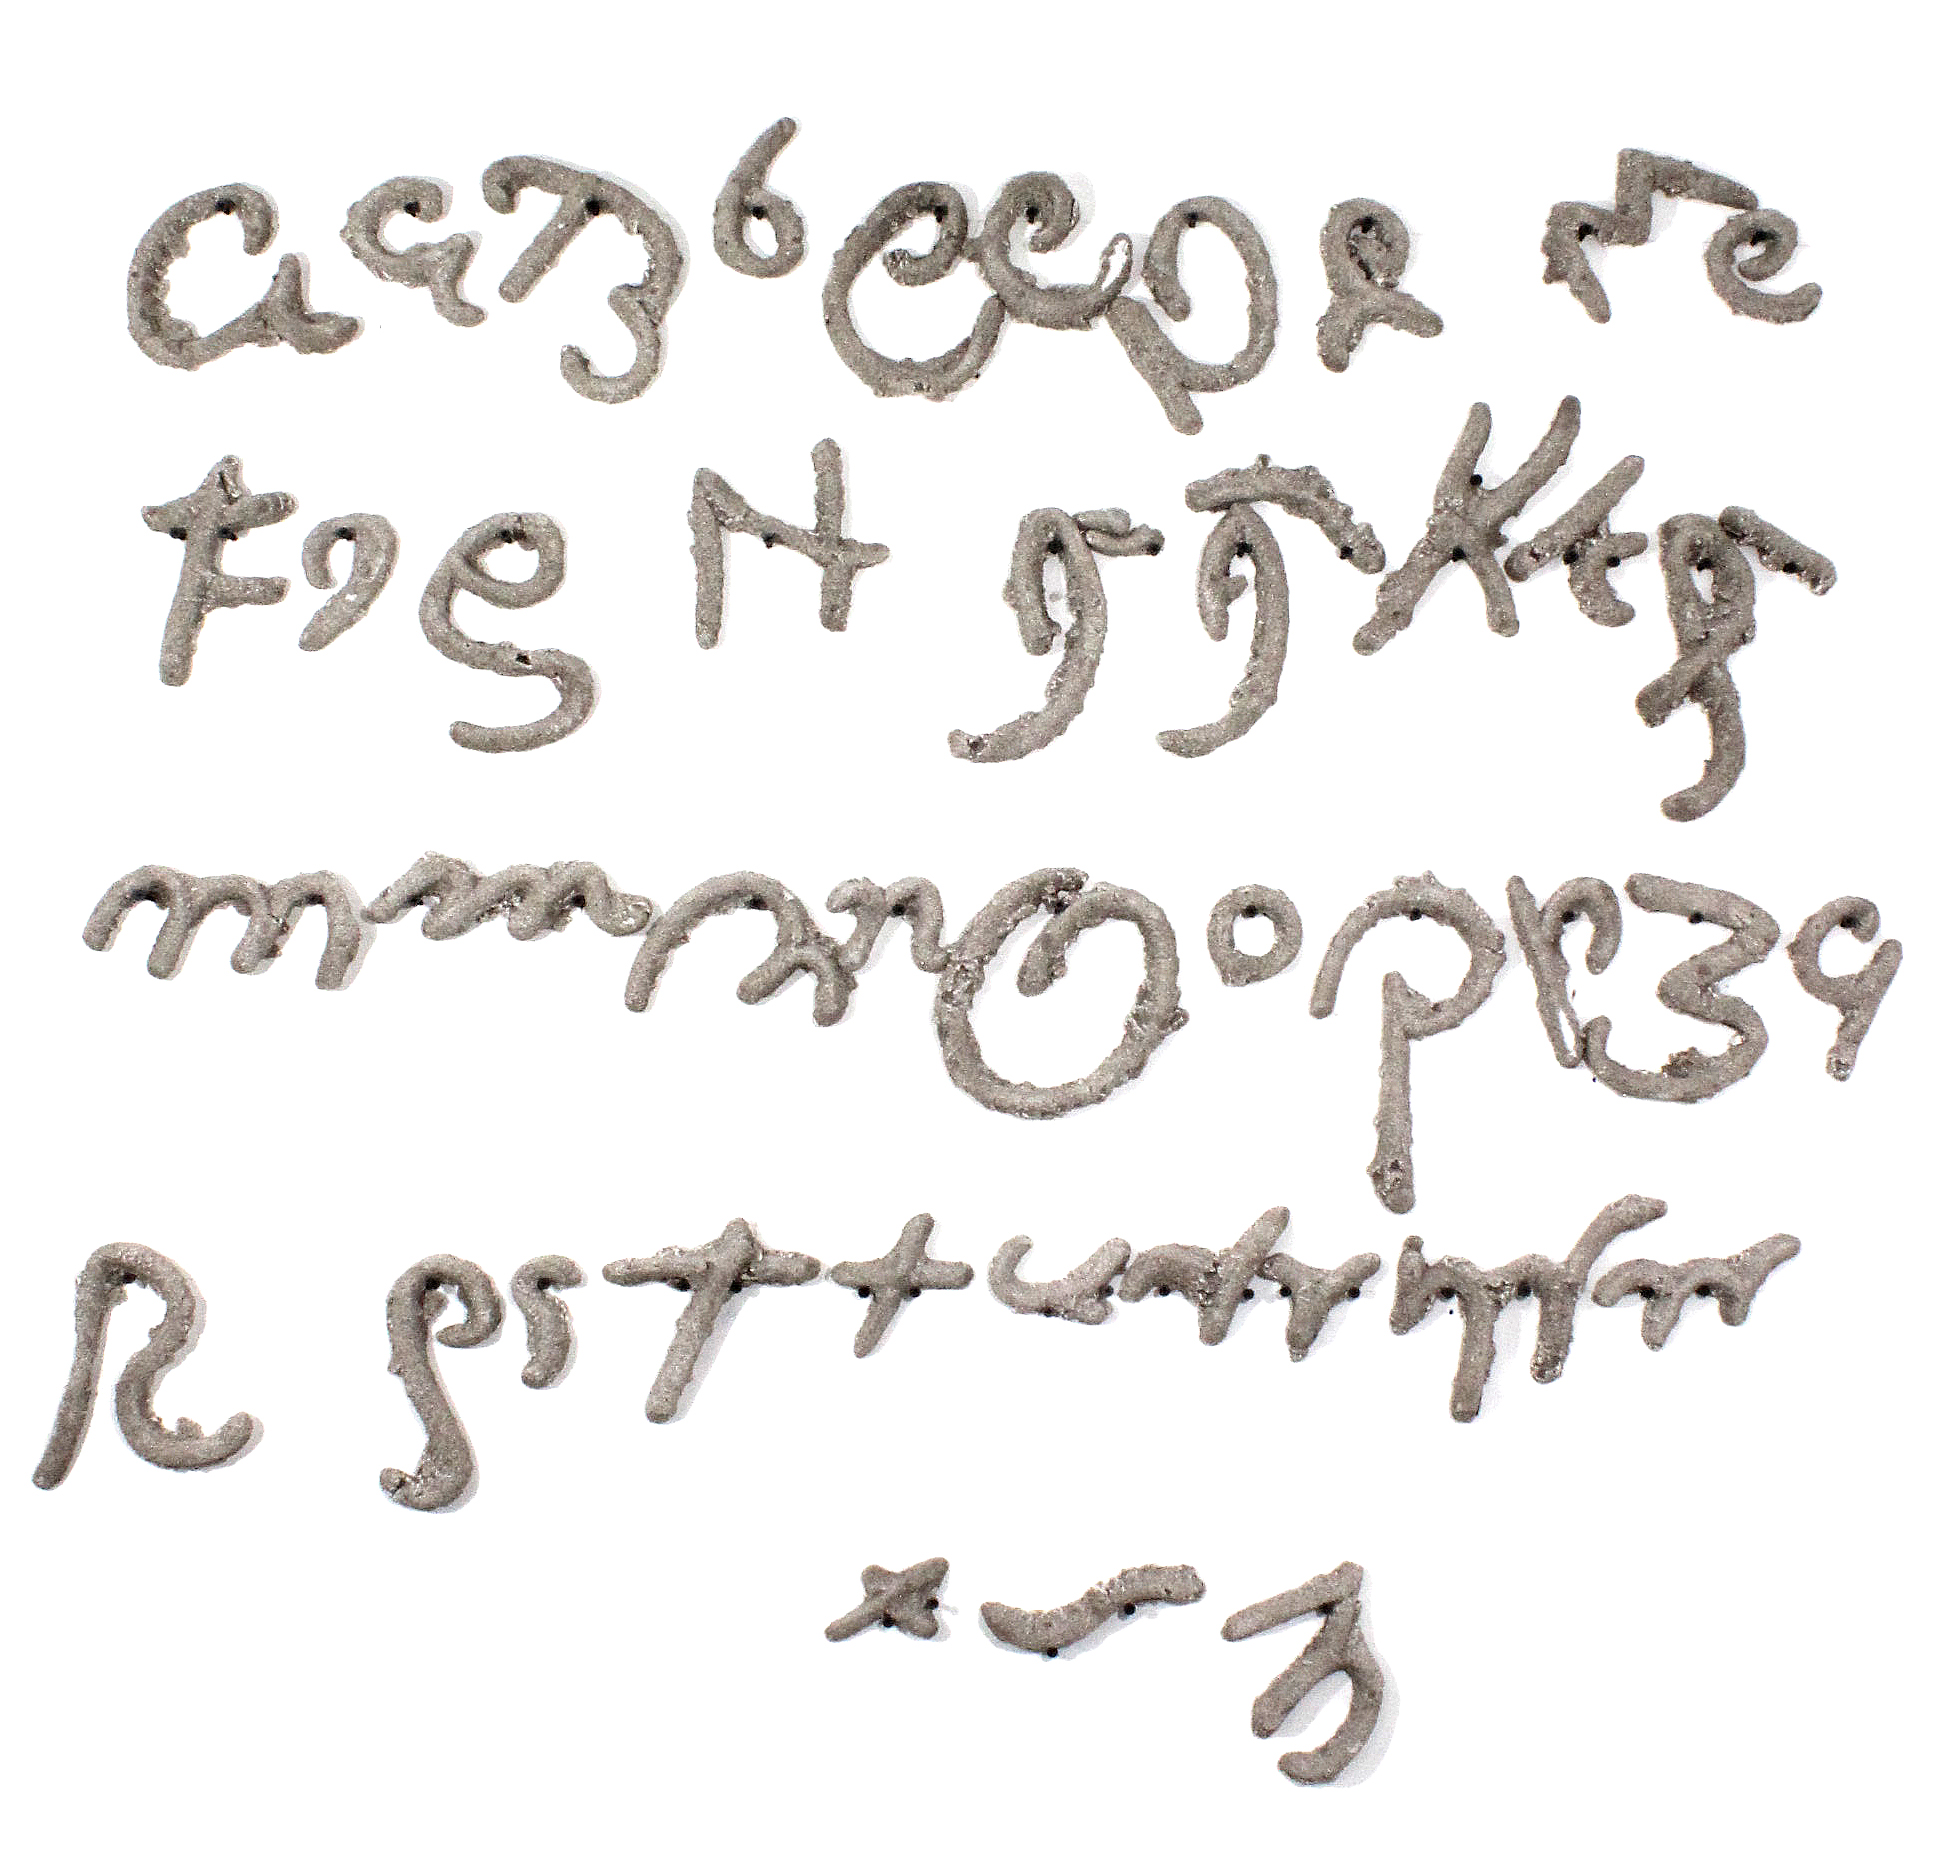 A a B b C c D d E e
F f G H I J K k
M m N n O o P p Q q
R S s T t u V v W w
x z